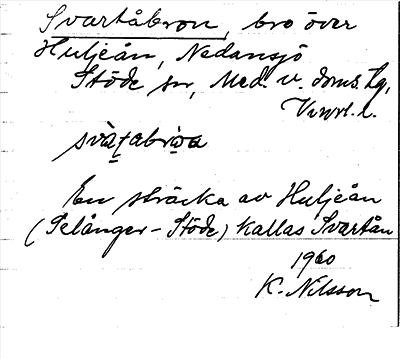 Svartåbron, bro över
Huljeån, Nedansjö
Stöde sn, Med. v. doms. tg,
Vnrl. l.
svàṭabrọ̀a
En sträcka av Huljeån
(Selånger - Stöde) kallas Svartån
1960
K. Nilsson